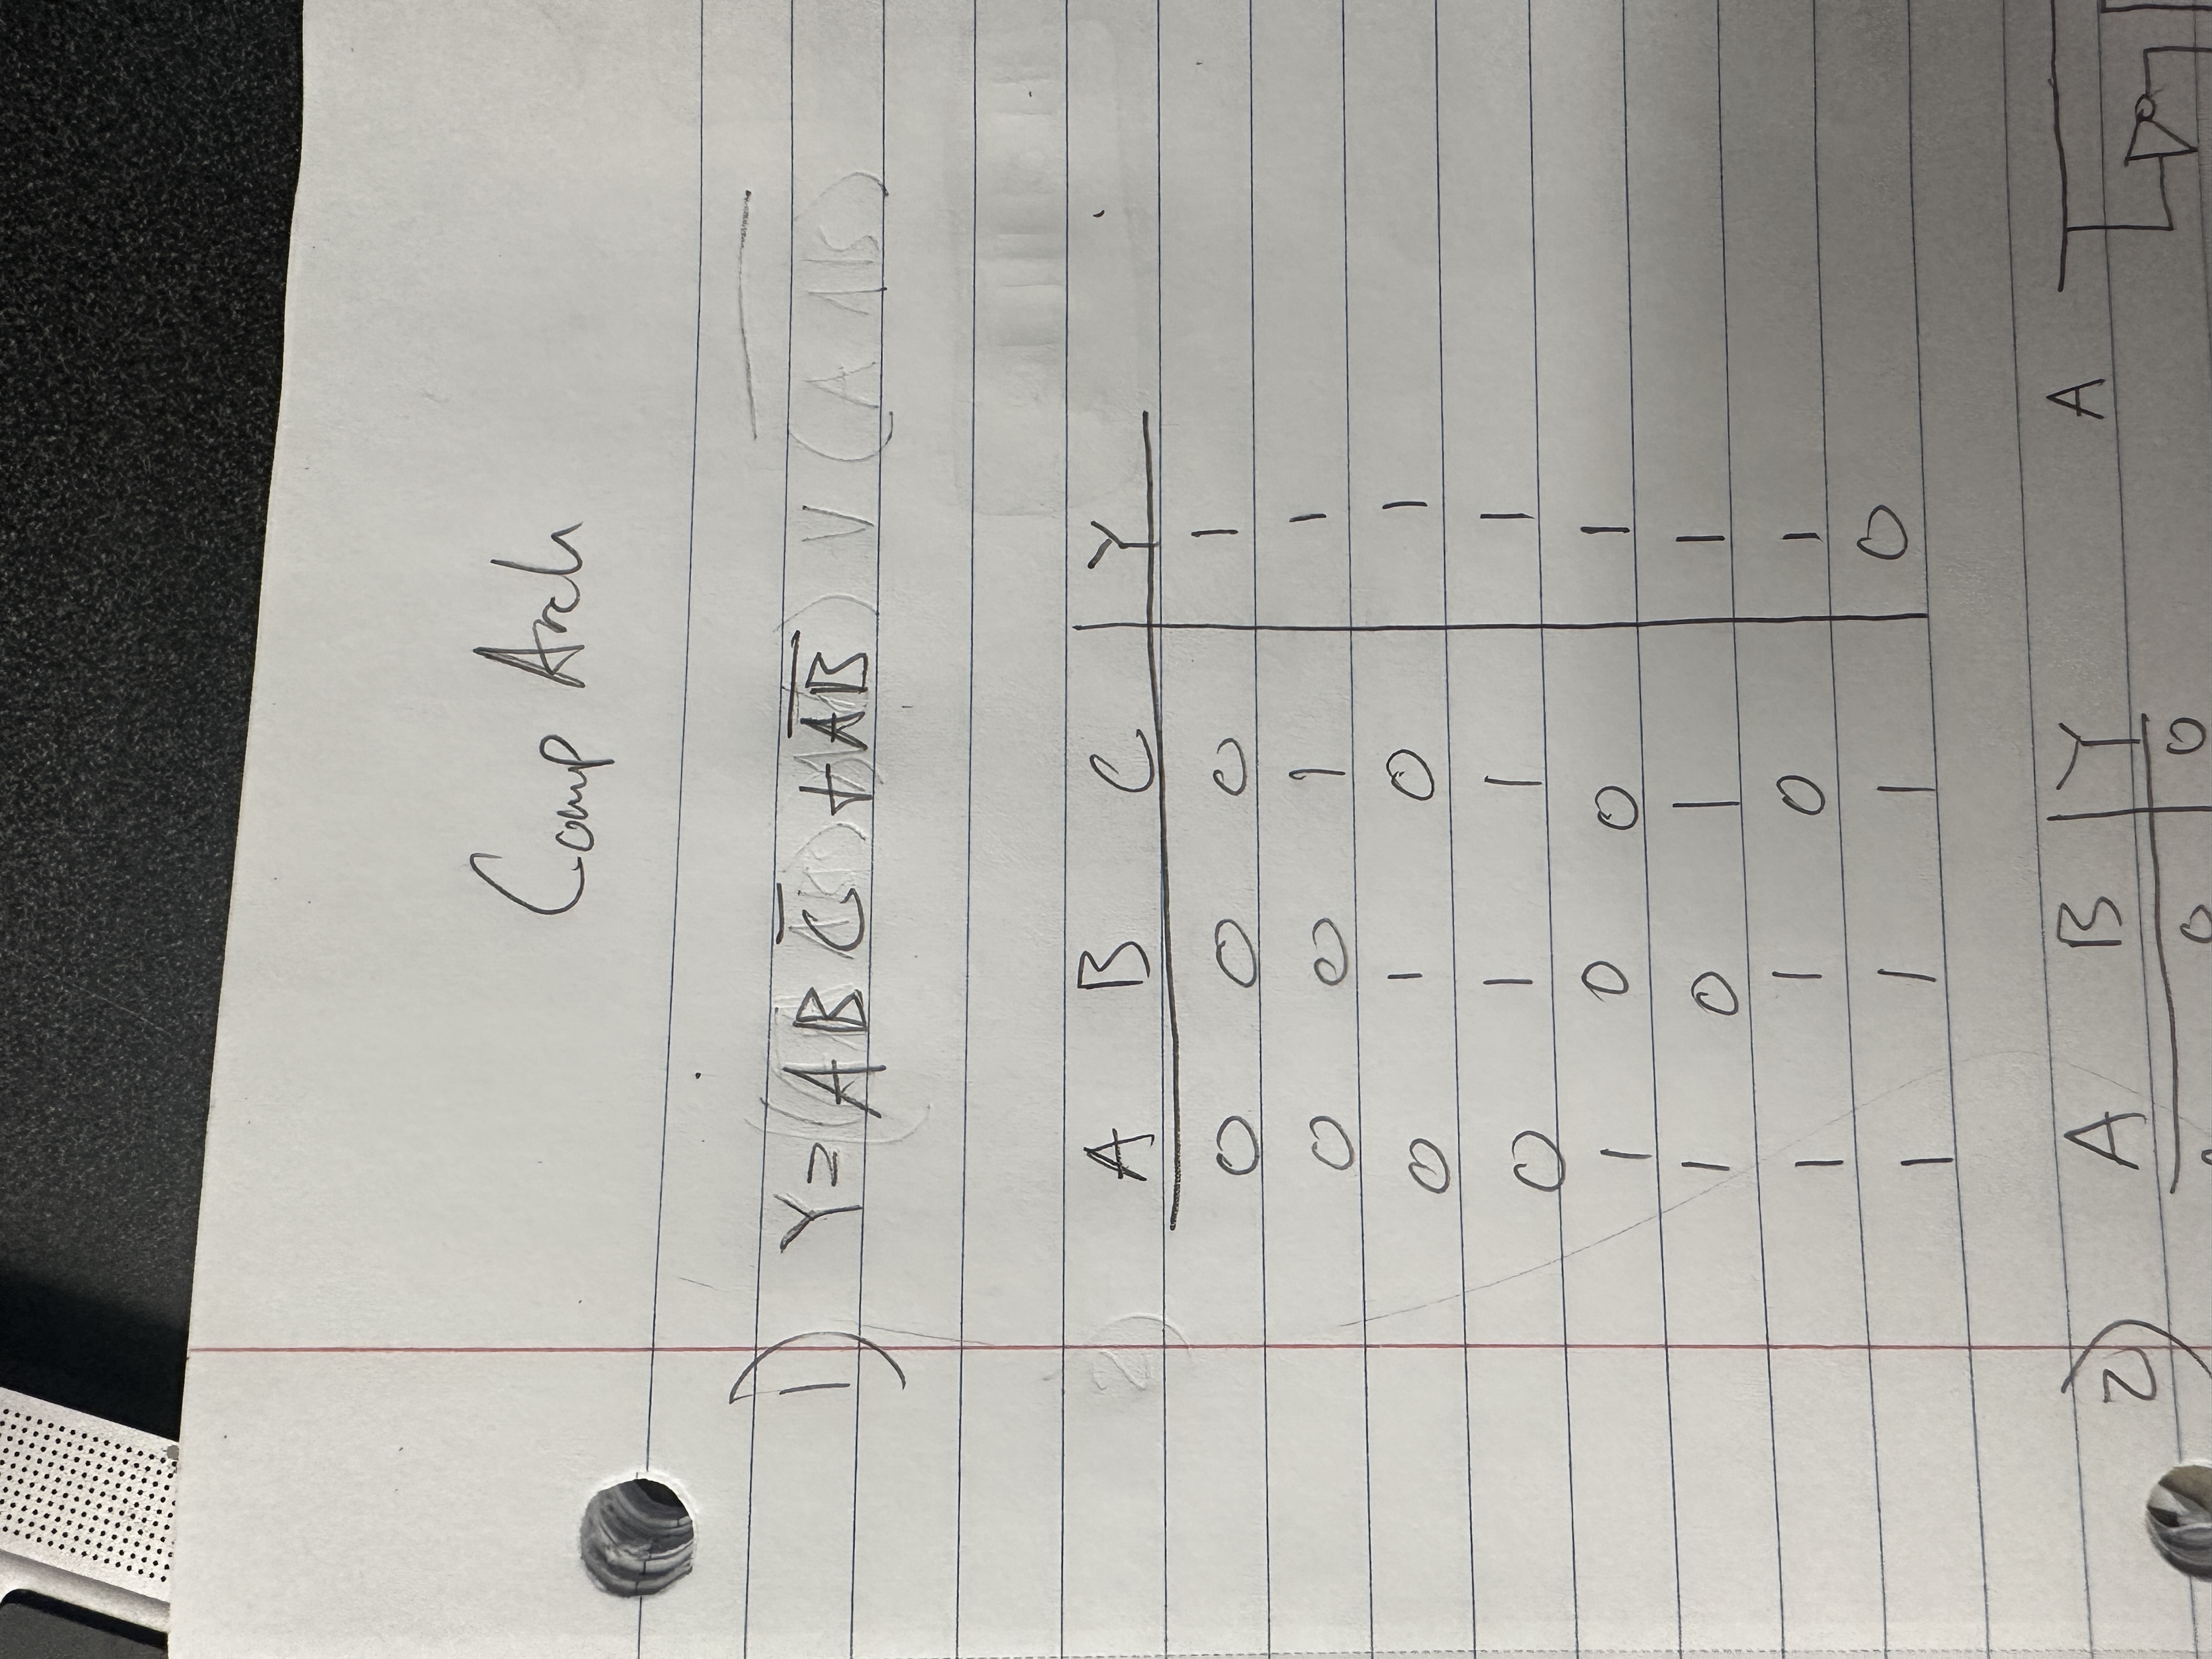 Comp Arch
1) Y = A B C̅ + A̅B̅
A B C Y
0 0 0 1
0 0 1 1
0 1 0 1
0 1 1 1
1 0 0 1
1 0 1 1
1 1 0 1
1 1 1 0
2) A B Y A
0 0